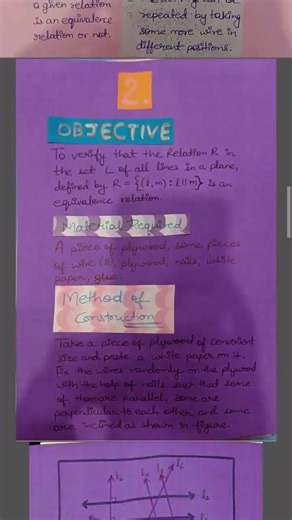 a given relation
is an equivalence
relation or not.
repeated by taking
some more wire in
different positions.
2.
OBJECTIVE
To verify that the Relation R in
the set L of all lines in a plane,
defined by R = {(l, m) : l || m} is an
equivalence relation.
Material Required
A piece of plywood, some pieces
of wire (8), plywood, nails, white
paper, glue.
Method of
Construction
Take a piece of plywood of convenient
size and paste a white paper on it.
Fix the wires randomly on the plywood
with the help of nails such that some
of them are parallel, some are
perpendicular to each other and some
are inclined as shown in figure.